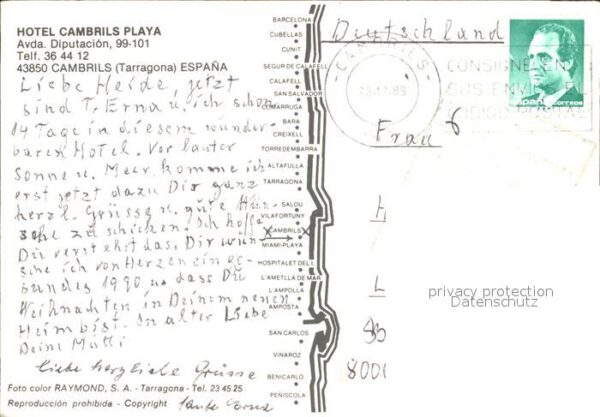 HOTEL CAMBRILS PLAYA
Avda. Diputación, 99-101
Telf. 36 44 12
43850 CAMBRILS (Tarragona) ESPAÑA
Liebe Heide, jetzt
sind T. Erna u. ich schon
14 Tage in diesem wunder-
baren Hotel. Vor lauter
Sonne u. Meer komme ich
erst jetzt dazu Dir ganz
herzl. Grüsse u. gute Wün-
sche zu schicken. Ich hoffe
Du verstehst das. Dir wün-
sche ich von Herzen ein ge-
sundes 1990 u. dass Du
Weihnachten in Deinem neuen
Heim bist. In alter Liebe
Deine Mutti
Liebe herzliche Grüsse
Tante Erna
Foto color RAYMOND, S. A. - Tarragona - Tel. 23 45 25
Reproducción prohibida - Copyright
BARCELONA
CUBELLAS
CUNIT
SEGUR DE CALAFELL
CALAFELL
SAN SALVADOR
COMARRUGA
BARA
CREIXELL
TORREDEMBARRA
ALTAFULLA
TARRAGONA
SALOU
VILAFORTUNY
CAMBRILS
MIAMI-PLAYA
HOSPITALET DEL I.
L'AMETLLA DE MAR
L'AMPOLLA
AMPOSTA
SAN CARLOS
VINAROZ
BENICARLO
PEÑISCOLA
Deutschland
CAMBRILS
CONSIGNE EN
SUS ENVIOS EL
CODIGO POSTAL
España correos
Frau
H
L
800
privacy protection
Datenschutz